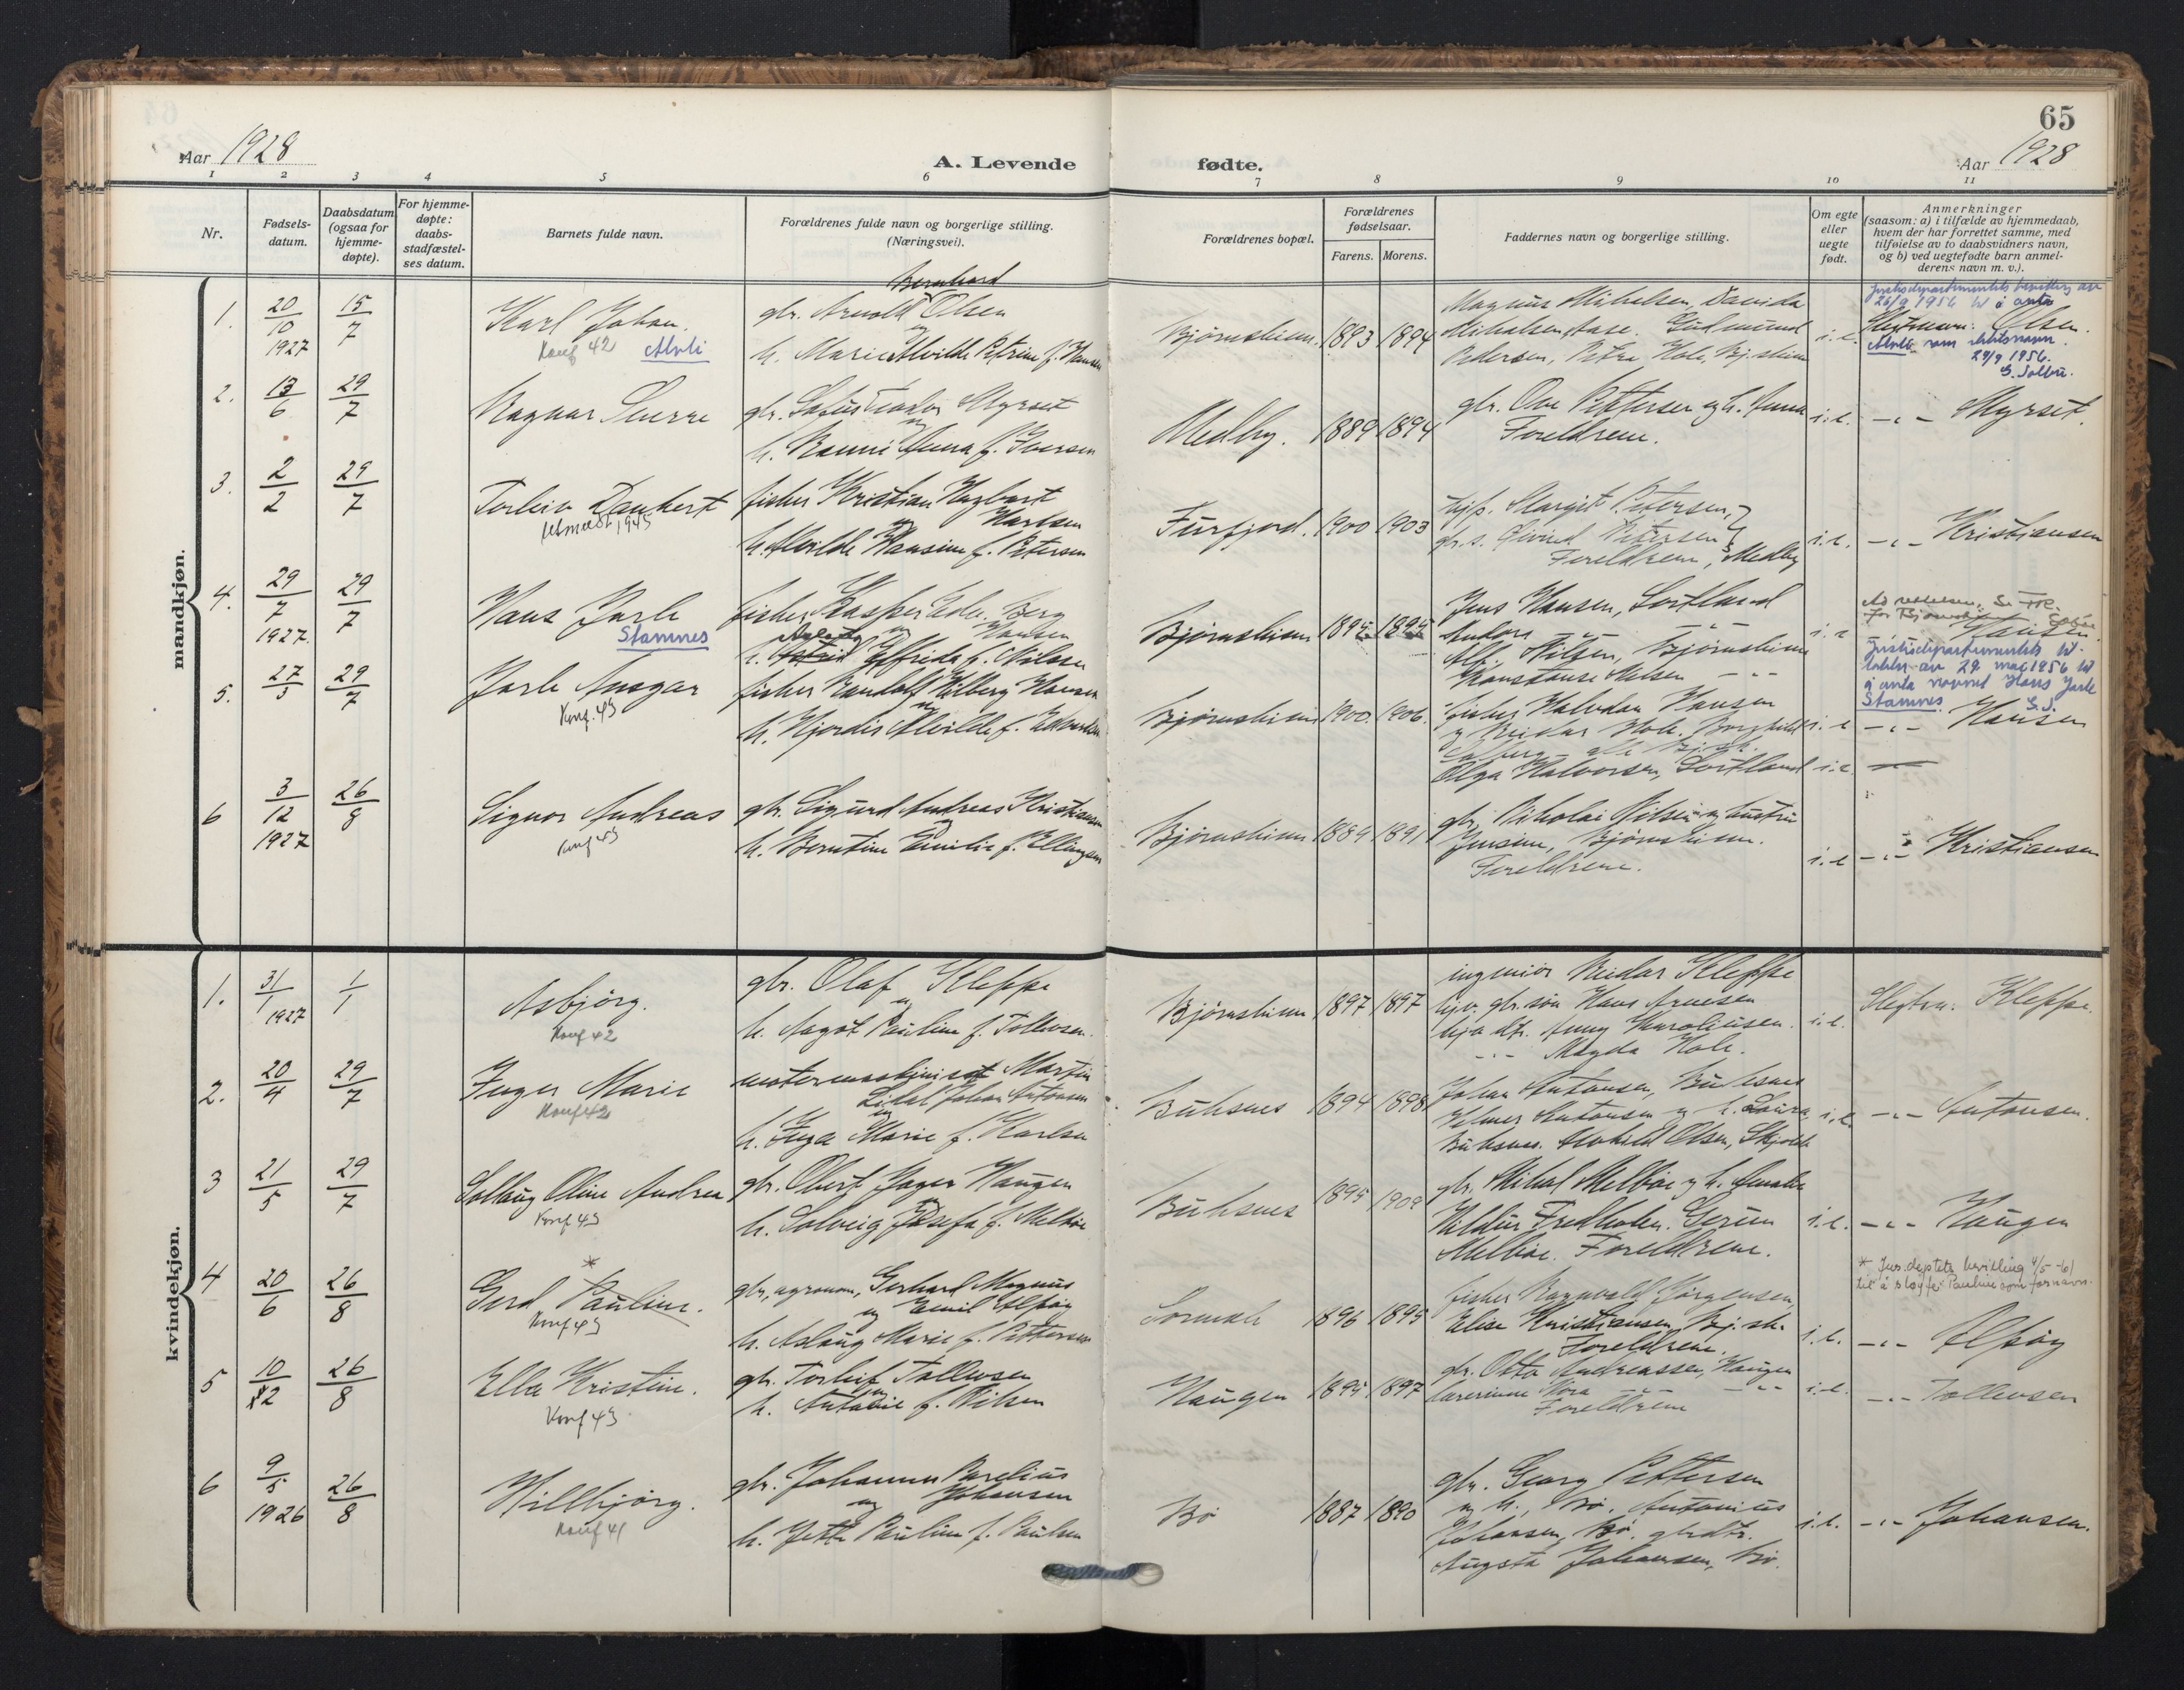 65
Aar 1928
A. Levende
fødte.
Aar 1928
1 2 3 4 5 6 7 8 9 10 11
Nr.
Fødsels-
datum.
Daabsdatum
(ogsaa for
hjemme-
døpte).
For hjemme-
døpte:
daabs-
stadfæstel-
ses datum.
Barnets fulde navn.
Forældrenes fulde navn og borgerlige stilling.
(Næringsvei).
Forældrenes bopæl.
Forældrenes
fødselsaar.
Farens. Morens.
Faddernes navn og borgerlige stilling.
Om egte
eller
uegte
født.
Anmerkninger
(saasom: a) i tilfælde av hjemmedaab,
hvem der har forrettet samme, med
tilføielse av to daabsvidners navn,
og b) ved uegtefødte barn anmel-
derens navn m. v.).
mandkjøn.
1. 20/10 1927 15/7
Karl Johan.
Konf 42 Alvli
Bernhard
gbr. Arnold Olsen
og
h. Marie Alvilde Petrine f. Hansen
Bjørnshinn. 1893 1894
Magnus Mikalsen, Davida
Mikalsen, Aase. Gudmund
Pedersen, Petra Hole, Bj.skinn
i. e.
Justisdepartementets bevilling av
26/9 1956 til å anta
Slegtnavn: Olsen.
Alvli som slektsnavn.
29/9 1956.
S. Solbu.
2. 13/6 29/7
Ragnar Sverre
gbr. Sofus Teodor Myrset
og
h. Ranni Anna f. Iversen
Medby. 1889 1894
gbr. Ove Pettersen og h. Anna
Foreldrene.
i. e. -„- Myrset.
3. 2/2 29/7
Torleiv Dankert
utmeldt 1945
fisker Kristian Hagbart
og Karlsen
h. Alvilde Hansine f. Petersen
Furfjord. 1900 1903
hjp. Margit Petersen,
gbr. s. Eivind Petersen
Foreldrene, Medby
i. e. -„- Kristiansen
4. 29/7 1927. 29/7
Hans Jarle
Stamnes
fisker Kasper Edv. Berg
og Hansen
h. Astrid Elfrida f. Nilsen
Bjørnshinn 1895 1895
Jens Hansen, Sortland
Anders -„-
Alf. Nilsen, Bjørnskinn
Konstanse Nilsen -„-
i. e
Hansen.
Justisdepartementets til-
latelse av 29. mai 1956 til
å anta navnet Hans Jarle
Stamnes. S. S.
5. 27/3 29/7
Jarle Ansgar
Konf. 43
fisker Randolf Hilberg Hansen
og
h. Hjordis Alvilde f. Edvardsen
Bjørnshinn 1900. 1906.
fisker Halvdan Hansen
og Reidar Hole. Borghild
alle Bj.sk.
Olga Halvorsen, Sortland
i. e -„- Hansen
i. e.
6 3/12 1927 26/8
Signor Andreas
Konf 43
gbr. Sigurd Andreas Kristiansen
og
h. Berntine Emilie f. Ellingsen
Bjørnshinn 1889 1891
gbr. Nikolai Nilsen og hustru
Jensine, Bjørnskinn.
Foreldrene.
i. e -„- Kristiansen
kvindekjøn.
1. 31/1 1927 1/1
Asbjørg.
Konf 42
gbr. Olaf Kleppe
og
h. Aagot Pauline f. Tollevsen.
Bjørnshinn 1897 1897
ingeniør Reidar Kleppe
ugv. gbr. søn Hans Arnesen
ugv. dtr. Anny Karoliussen.
-„- Magda Hole.
i. e.
Slegtn: Kleppe.
2. 20/4 29/7
Inger Marie
Konf 42
motormaskinist Martin
Lidal Johan Antonsen
og
h. Inga Marie f. Karlsen
Buksnes 1894 1898
Johan Antonsen, Buksnes
Helmer Antonsen og h. Laura
Buksnes. Alvhild Olsen,
i. e. -„- Antonsen.
3 21/5 29/7
Solbaug Oline Andrea
Konf 43
gbr. Obert Jager Haugen
og
h. Solveig Josefa f. Melbøe
Buksnes 1895 1902
gbr. Mikal Melbøe og h. Amalie
Hildur Fredheim. Gerum
Melbøe. Foreldrene.
i. e. -„- Haugen
4 20/6 26/8
*
Gerd Pauline.
Konf 43
gbr, agronom, Gerhard Magnus
og Emil Elfsøy
h. Aslaug Marie f. Pettersen
Sørmæle 1896 1895
fisker Ragnvald Jørgensen
Elise Kristiansen, Bj.sk.
Foreldrene.
i. e.
* Jus. deptets bevilling 4/5 -61
til å sløyfe Pauline som fornavn.
-„- Elfsøy
5 10/12 26/8
Ella Kristine.
Konf 43
gbr. Torleif Tollevsen
og
h. Antonie f. Nilsen
Haugen 1895 1897
gbr. Otto Andreassen, Haugen
lærerinne Nora -„- -„-
Foreldrene
i. e. -„- Tollevsen
6 9/5 1926 26/8
Hillbjørg.
Konf 41
gbr. Johannes Parelius
og Johansen
h. Jette Pauline f. Paulsen
Bø 1887 1890
gbr. Georg Pettersen
og h., Bø. Antonius
Johansen, Bø. gbrdtr.
Augsta Johansen, Bø.
i. e. -„- Johansen.